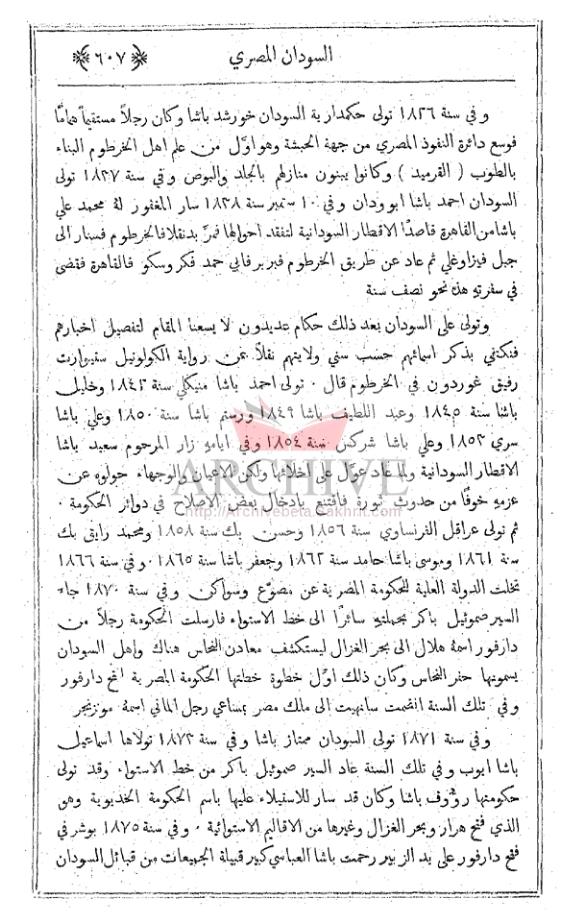 السودان المصري
﴿٦٠٧﴾
وفي سنة ١٨٢٦ تولى حكمدارية السودان خورشد باشا وكان رجلاً مستقيماً هماماً
فوسع دائرة النفوذ المصري من جهة الحبشة وهو اوّل من علم اهل الخرطوم البناء
بالطوب ( القرميد ) وكانوا يبنون منازلهم بالجلد والبوص وفي سنة ١٨٣٧ تولى
السودان احمد باشا ابو ودان وفي ١٠ ستمبر سنة ١٨٣٨ سار المغفور لهُ محمد علي
باشا من القاهرة قاصداً الاقطار السودانية لتفقد احوالها فمرَّ بدنقلا فالخرطوم فسنار الى
جبل فيزاوغلي ثم عاد عن طريق الخرطوم فبربر فابي حمد فكروسكو فالقاهرة فقضى
في سفرتهِ هذه نحو نصف سنة
وتولى على السودان بعد ذلك حكام عديدون لا يسعنا المقام لتفصيل اخبارهم
فنكتفي بذكر اسمائهم حسب سني ولايتهم نقلاً عن رواية الكولونيل ستيوارت
رفيق غوردون في الخرطوم قال . تولى احمد باشا منيكلي سنة ١٨٤٣ وخليل
باشا سنة ١٨٤٥ وعبد اللطيف باشا ١٨٤٩ ورستم باشا سنة ١٨٥٠ وعلي باشا
سري ١٨٥٣ وعلي باشا شركس سنة ١٨٥٤ وفي ايامهِ زار المرحوم سعيد باشا
الاقطار السودانية ولما عاد عوّل على اخلائها ولكن الاعيان والوجهاء حولوه عن
عزمهِ خوفاً من حدوث ثورة فاقتنع بادخال بعض الاصلاح في دوائر الحكومة .
ثم تولى عراقل الفرنساوي سنة ١٨٥٦ وحسن بك سنة ١٨٥٨ ومحمد راتق بك
سنة ١٨٦١ وموسى باشا حامد سنة ١٨٦٢ وجعفر باشا سنة ١٨٦٥ . وفي سنة ١٨٦٦
تخلت الدولة العلية للحكومة المصرية عن مصوّع وسواكن وفي سنة ١٨٧٠ جاء
السير صموئيل باكر بحملتهِ سائرًا الى خط الاستواء فارسلت الحكومة رجلاً من
دارفور اسمهُ هلال الى بحر الغزال ليستكشف معادن النحاس هناك واهل السودان
يسمونها حفر النحاس وكان ذلك اوّل خطوة خطتها الحكومة المصرية لفتح دارفور
وفي تلك السنة انضمت سانهيت الى ملك مصر بمساعي رجل الماني اسمهُ مونزنجر
وفي سنة ١٨٧١ تولى السودان ممتاز باشا وفي سنة ١٨٧٣ تولاها اسماعيل
باشا ايوب وفي تلك السنة عاد السير صموئيل باكر من خط الاستواء وقد تولى
حكومتها رؤوف باشا وكان قد سار للاستيلاء عليها باسم الحكومة الخديوية وهو
الذي فتح هرار وبحر الغزال وغيرها من الاقاليم الاستوائية . وفي سنة ١٨٧٥ بوشر في
فتح دارفور على يد الزبير رحمت باشا العباسي كبير قبيلة الجميعات من قبائل السودان
ARCHIVE
http://Archivebeta.Sakhrit.com